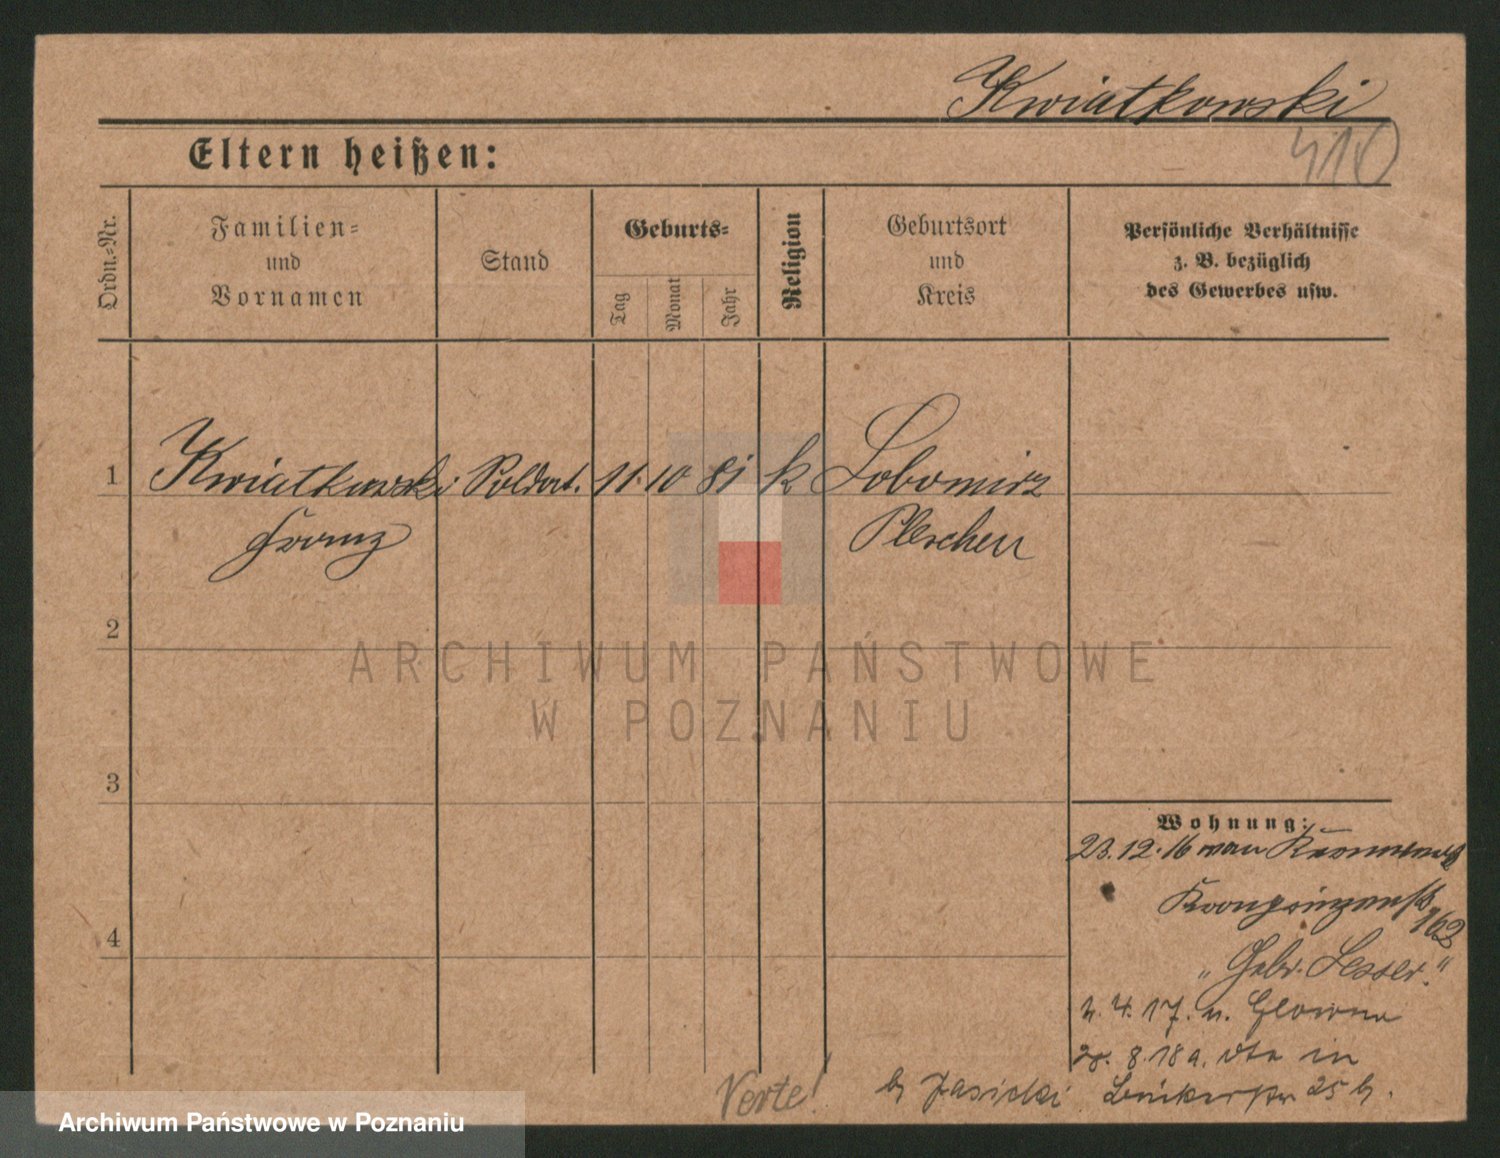 Kwiatkowski
410
Eltern heißen:
Ordn.-Nr.
Familien-
und
Vornamen
Stand
Geburts-
Tag
Monat
Jahr
Religion
Geburtsort
und
Kreis
Persönliche Verhältnisse
z. B. bezüglich
des Gewerbes usw.
1 Kwiatkowski Soldat. 11. 10 81 k Lobomirz
Franz Pleschen
2
3
4
Wohnung:
23. 12. 16 von
Kronprinzenstr 162
"Gebr. Lesser."
4. 17. n. Glowno
8. 18 a. in
Verte!
b/ Jasicki 25 b/.
ARCHIWUM PAŃSTWOWE
W POZNANIU
Archiwum Państwowe w Poznaniu